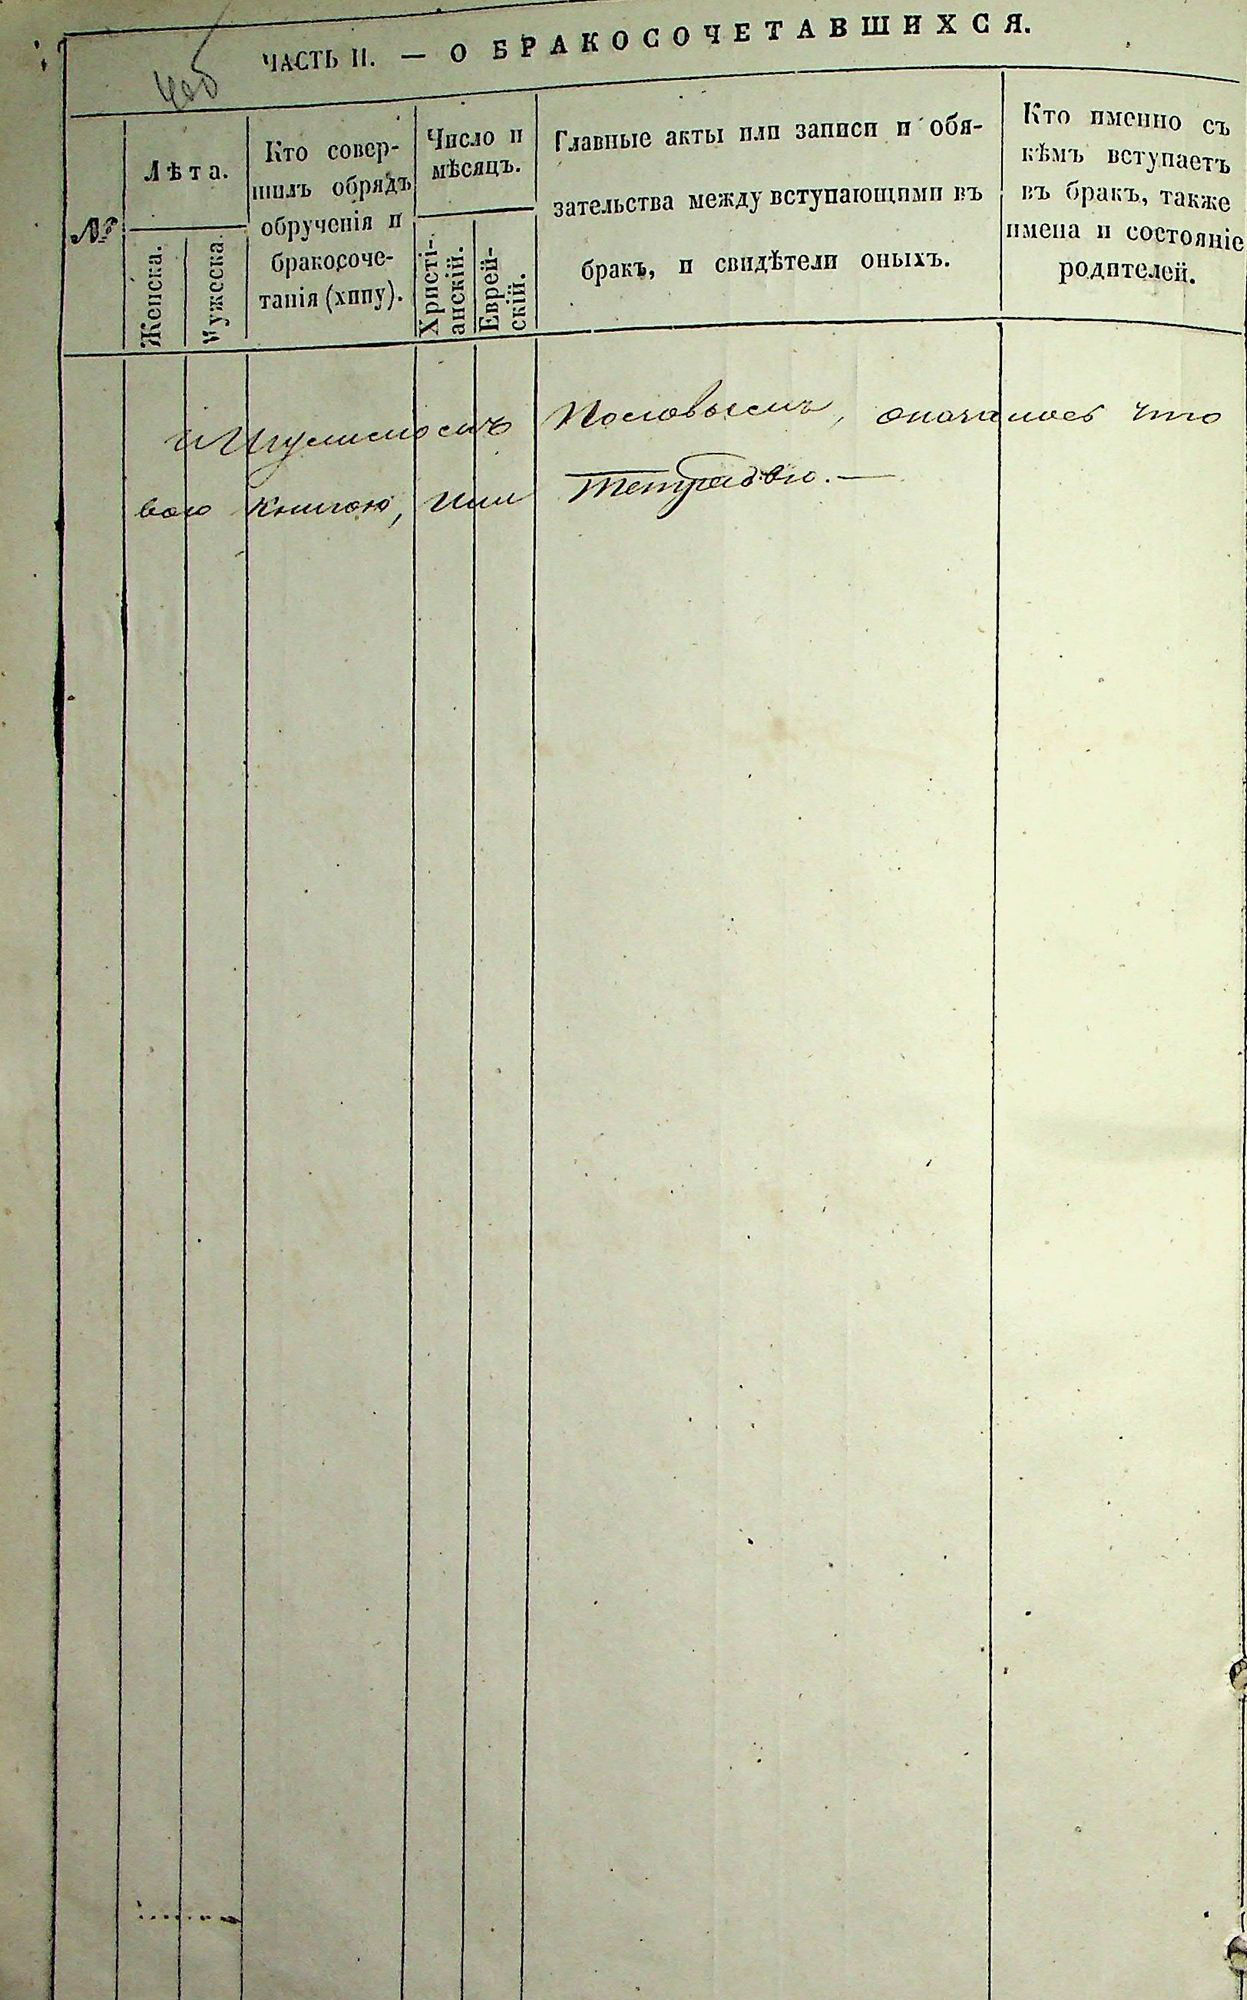 ЧАСТЬ II. — О БРАКОСОЧЕТАВШИХСЯ.
№
Лѣта.
Женска.
Мужеска.
Кто совер-
шилъ обрядъ
обрученія и
бракосоче-
танія (хипу).
Число и
мѣсяцъ.
Христі-
анскій.
Еврей-
скій.
Главные акты или записи и обя-
зательства между вступающими въ
бракъ, и свидѣтели оныхъ.
Кто именно съ
кѣмъ вступаетъ
въ бракъ, также
имена и состояніе
родителей.
оказалось что
вою книгою, или тетрадью. —